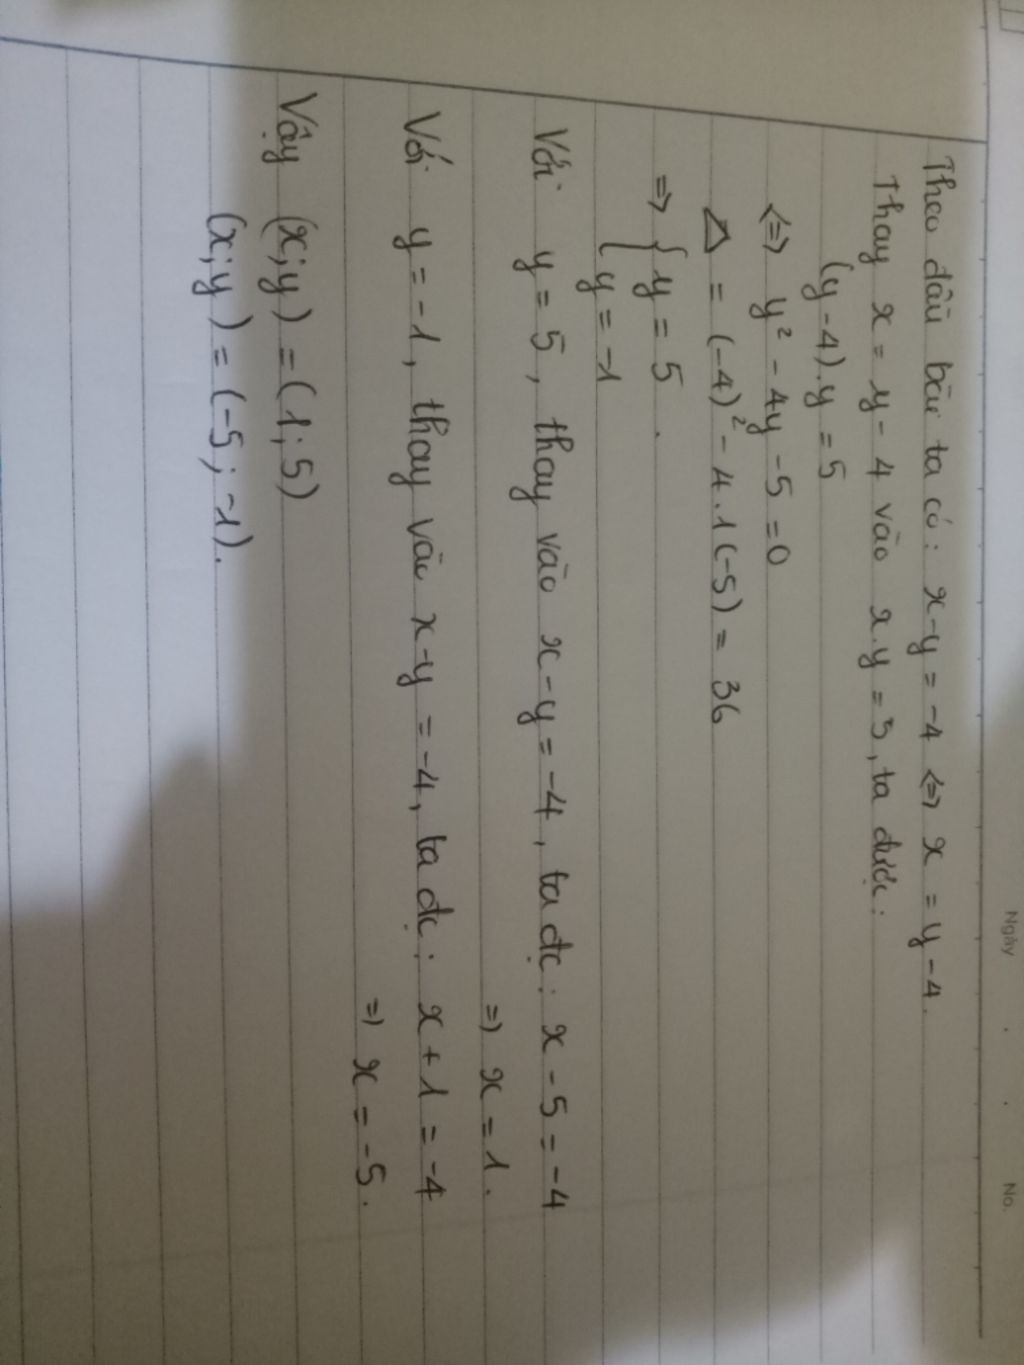 Ngày . . No.
Theo đầu bài ta có: x-y = -4 <=> x = y -4.
Thay x = y - 4 vào x.y = 5, ta được:
(y-4).y = 5
<=> y² - 4y -5 =0
Δ = (-4)² - 4.1(-5) = 36
=> { y = 5 .
{ y = -1
Với y = 5, thay vào x-y = -4, ta đc: x - 5 = -4
=> x = 1.
Với y = -1, thay vào x-y = -4, ta đc: x + 1 = -4
=> x = -5.
Vậy (x;y) = (1;5)
(x;y) = (-5; -1).